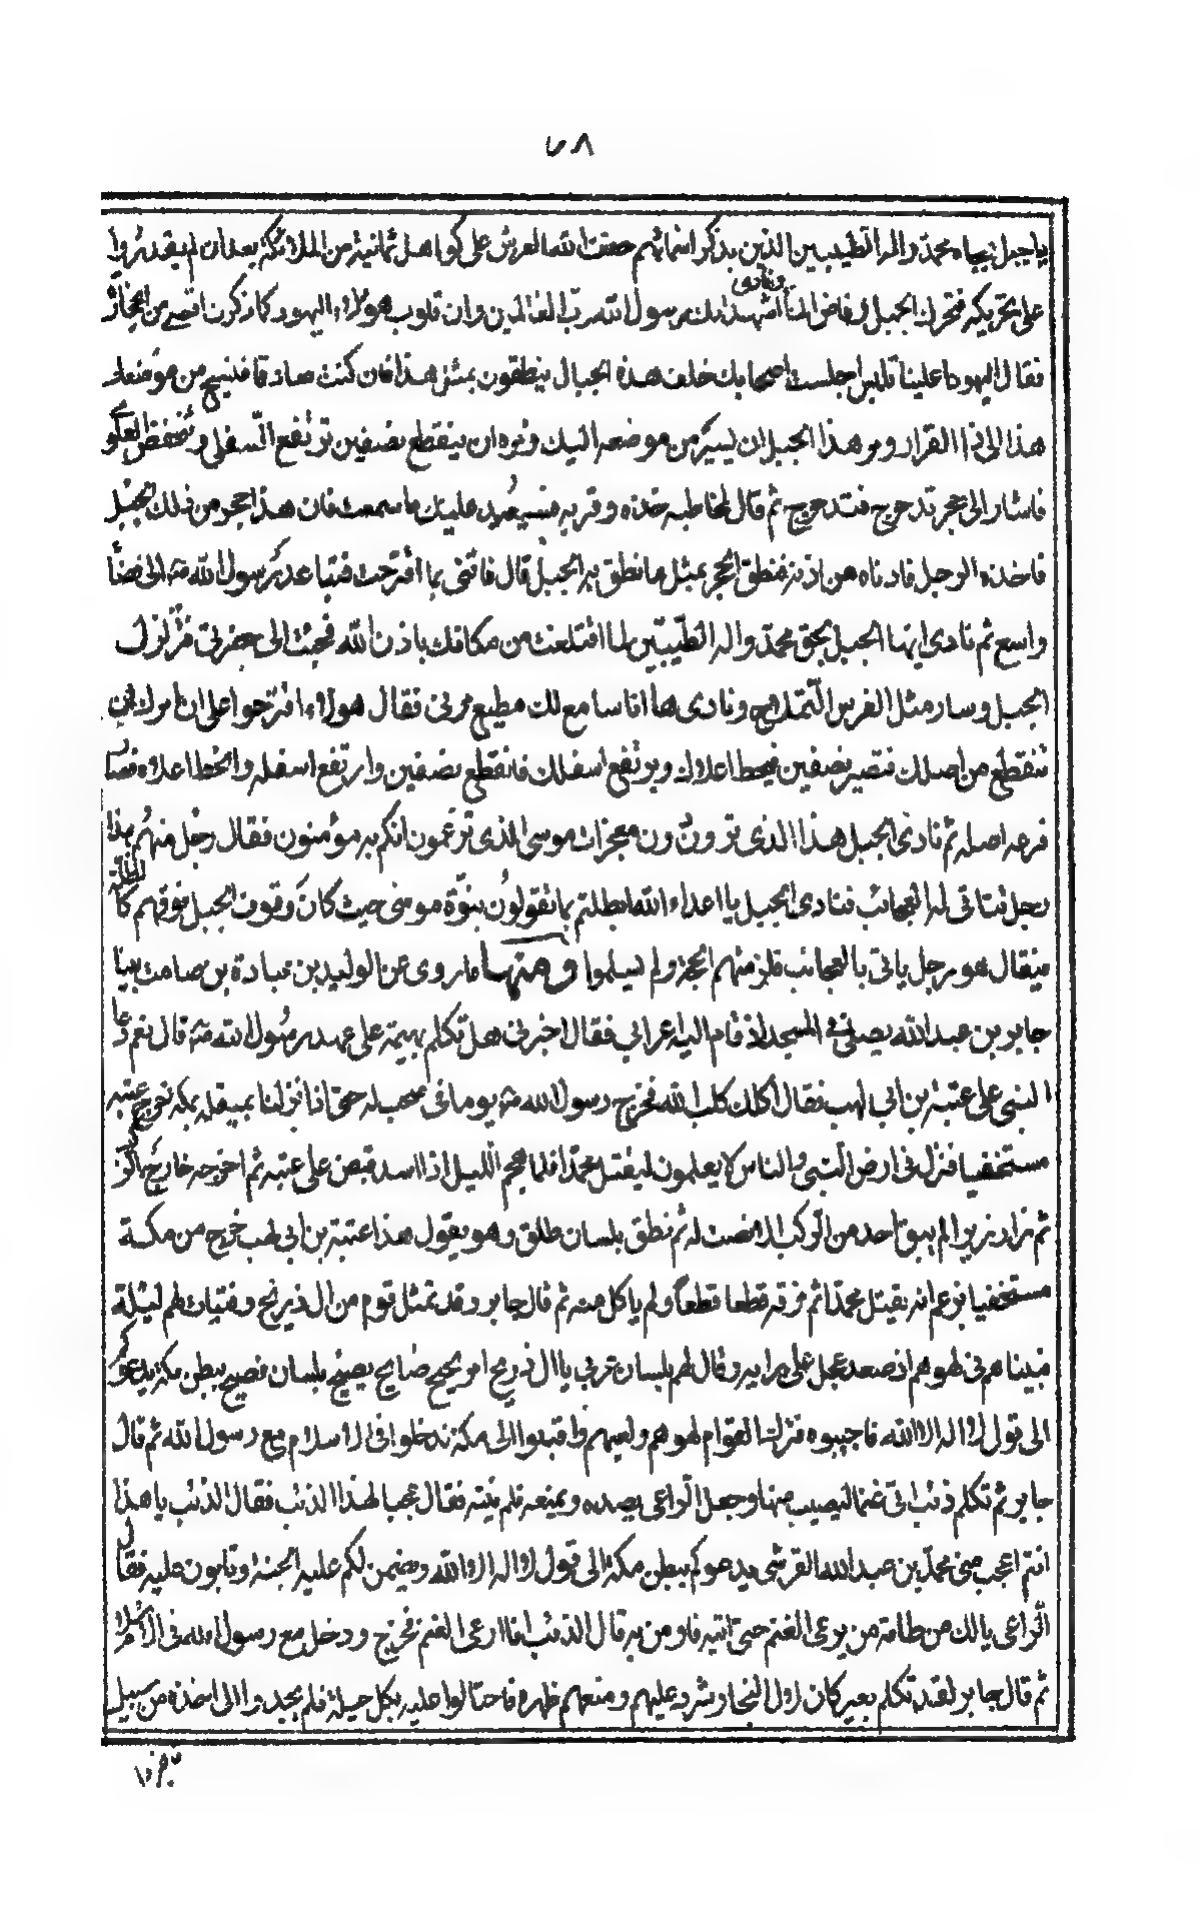 ٦٨
يا جبل بجاه محمد واله الطيبين الذين بذكر اسمائهم خفف الله العرش على كواهل ثمانية من الملائكة بعد ان لم يقدروا
على تحريكه فتحرك الجبل وفاض الماء ونادى اشهد انك رسول الله رب العالمين وان قلوب هؤلاء اليهود كما ذكرت اقسى من الحجارة
فقال اليهود اعلينا تلبس اجلست اصحابك خلف هذه الجبال ينطقون بمثل هذا فان كنت صادقا فتنح من موضعك
هذا الى ذا القرار ومر هذا الجبل ان يسير من موضعه اليك ومره ان ينقطع نصفين ترتفع السفلى وتنخفض العليا
فاشار الى حجر تدحرج فتدحرج ثم قال لمخاطبه خذه وقربه فسيعيد عليك ما سمعت فان هذا حجر من ذلك الجبل
فاخذه الرجل فادناه من اذنه فنطق الحجر بمثل ما نطق به الجبل قال فاتنى بما اقترحت فتباعد رسول الله الى فضاء
واسع ثم نادى ايها الجبل بحق محمد واله الطيبين لما اقتلعت من مكانك باذن الله فجئت الى حضرتى فتزلزل
الجبل وسار مثل الفرس ونادى ها انا سامع لك مطيع مرنى فقال هؤلاء اقترحوا على ان امرك ان
تنقطع من اصلك فتصير نصفين فيحط اعلاك ويرتفع اسفلك فانقطع نصفين وارتفع اسفله وانحط اعلاه فصار
فرعه اصله ثم نادى الجبل هذا الذى ترون دون معجزات موسى الذى تزعمون انكم به مؤمنون فقال رجل منهم هذا
رجل تتاتى له العجائب فنادى الجبل يا اعداء الله ابطلتم بما تقولون نبوة موسى حيث كان وقوف الجبل فوقهم كالظلة
فيقال هو رجل ياتى بالعجائب فلزمتهم الحجة ولم يسلموا ومنها ما روى عن الوليد بن عبادة بن صامت بينا
جابر بن عبد الله يصلى فى المسجد اذ قام اليه اعرابى فقال اخبرنى هل تكلم بهيمة على عهد رسول الله قال نعم دعا
النبى على عتبة بن ابى لهب فقال اكلك كلب الله فخرج رسول الله يوما فى صحب له حتى اذا نزلنا بمكة فخرج عتبة
مستخفيا فنزل فى ارض النبى والناس لا يعلمون ليقتل محمدا فلما هجم الليل اذا اسد قبض على عتبة ثم اخرجه خارج الركب
ثم زار زئيرا لم يبق احد من الركب الا انصت له ثم نطق بلسان طلق وهو يقول هذا عتبة بن ابى لهب خرج من مكة
مستخفيا يزعم انه يقتل محمدا ثم فرقه قطعا قطعا ولم ياكل منه ثم قال جابر وقد تمثل قوم من ال ذريح وفتيات لهم ليلة
فبيناهم فى لهوهم اذ صعد عجل على رابية وقال لهم بلسان عربى يا ال ذريح امر نجيح صايح يصيح بلسان فصيح ببطن مكة يدعوكم
الى قول لا اله الا الله فاجيبوه فترك القوم لهوهم ولعبهم واقبلوا الى مكة فدخلوا فى الاسلام مع رسول الله ثم قال
جابر ثم تكلم ذئب اتى غنما ليصيب منها وجعل الراعى يصده ويمنعه فلم ينته فقال عجبا لهذا الذئب فقال الذئب يا هذا
انتم اعجب منى محمد بن عبد الله القرشى يدعوكم ببطن مكة الى قول لا اله الا الله ويضمن لكم عليه الجنة وتابون عليه فقال
الراعى يا لك من طامة من يرعى الغنم حتى اتيه فاومن به قال الذئب انا ارعى الغنم فخرج ودخل مع رسول الله فى الاسلام
ثم قال جابر لقد تكلم بعير كان لال النجار شرد عليهم ومنعهم ظهره فاحتالوا عليه بكل حيلة فلم يجدوا الى اخذه من سبيل